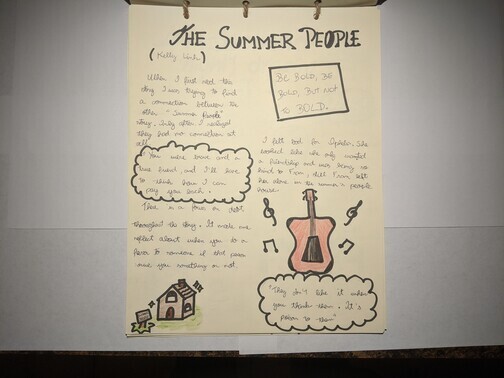 THE SUMMER PEOPLE
(Kelly Link)
When I first read this
story I was trying to find
a connection between the
other "Summer People"
story. Only after I realized
they had no connection at
all.
"You were brave and a
true friend, and I'll have
to think how I can
pay you back."
There is a focus on debt
throughout the story. It made me
reflect about when you do a
favor to someone if that person
owes you something or not.
BE BOLD, BE
BOLD, BUT NOT
TO BOLD.
I felt bad for Ophelia. She
looked like she only wanted
a friendship and was being so
kind to Fran, till Fran left
her alone in the summer people
house.
"They don't like it when
you thank them. It's
poison to them"